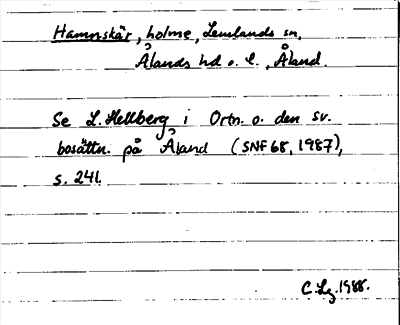 Hamnskär, holme, Lemlands sn,
Ålands hd o. l., Åland.
Se L. Hellberg i Ortn. o. den sv.
bosättn. på Åland (SNF 68, 1987),
s. 241.
C. Lg. 1988.